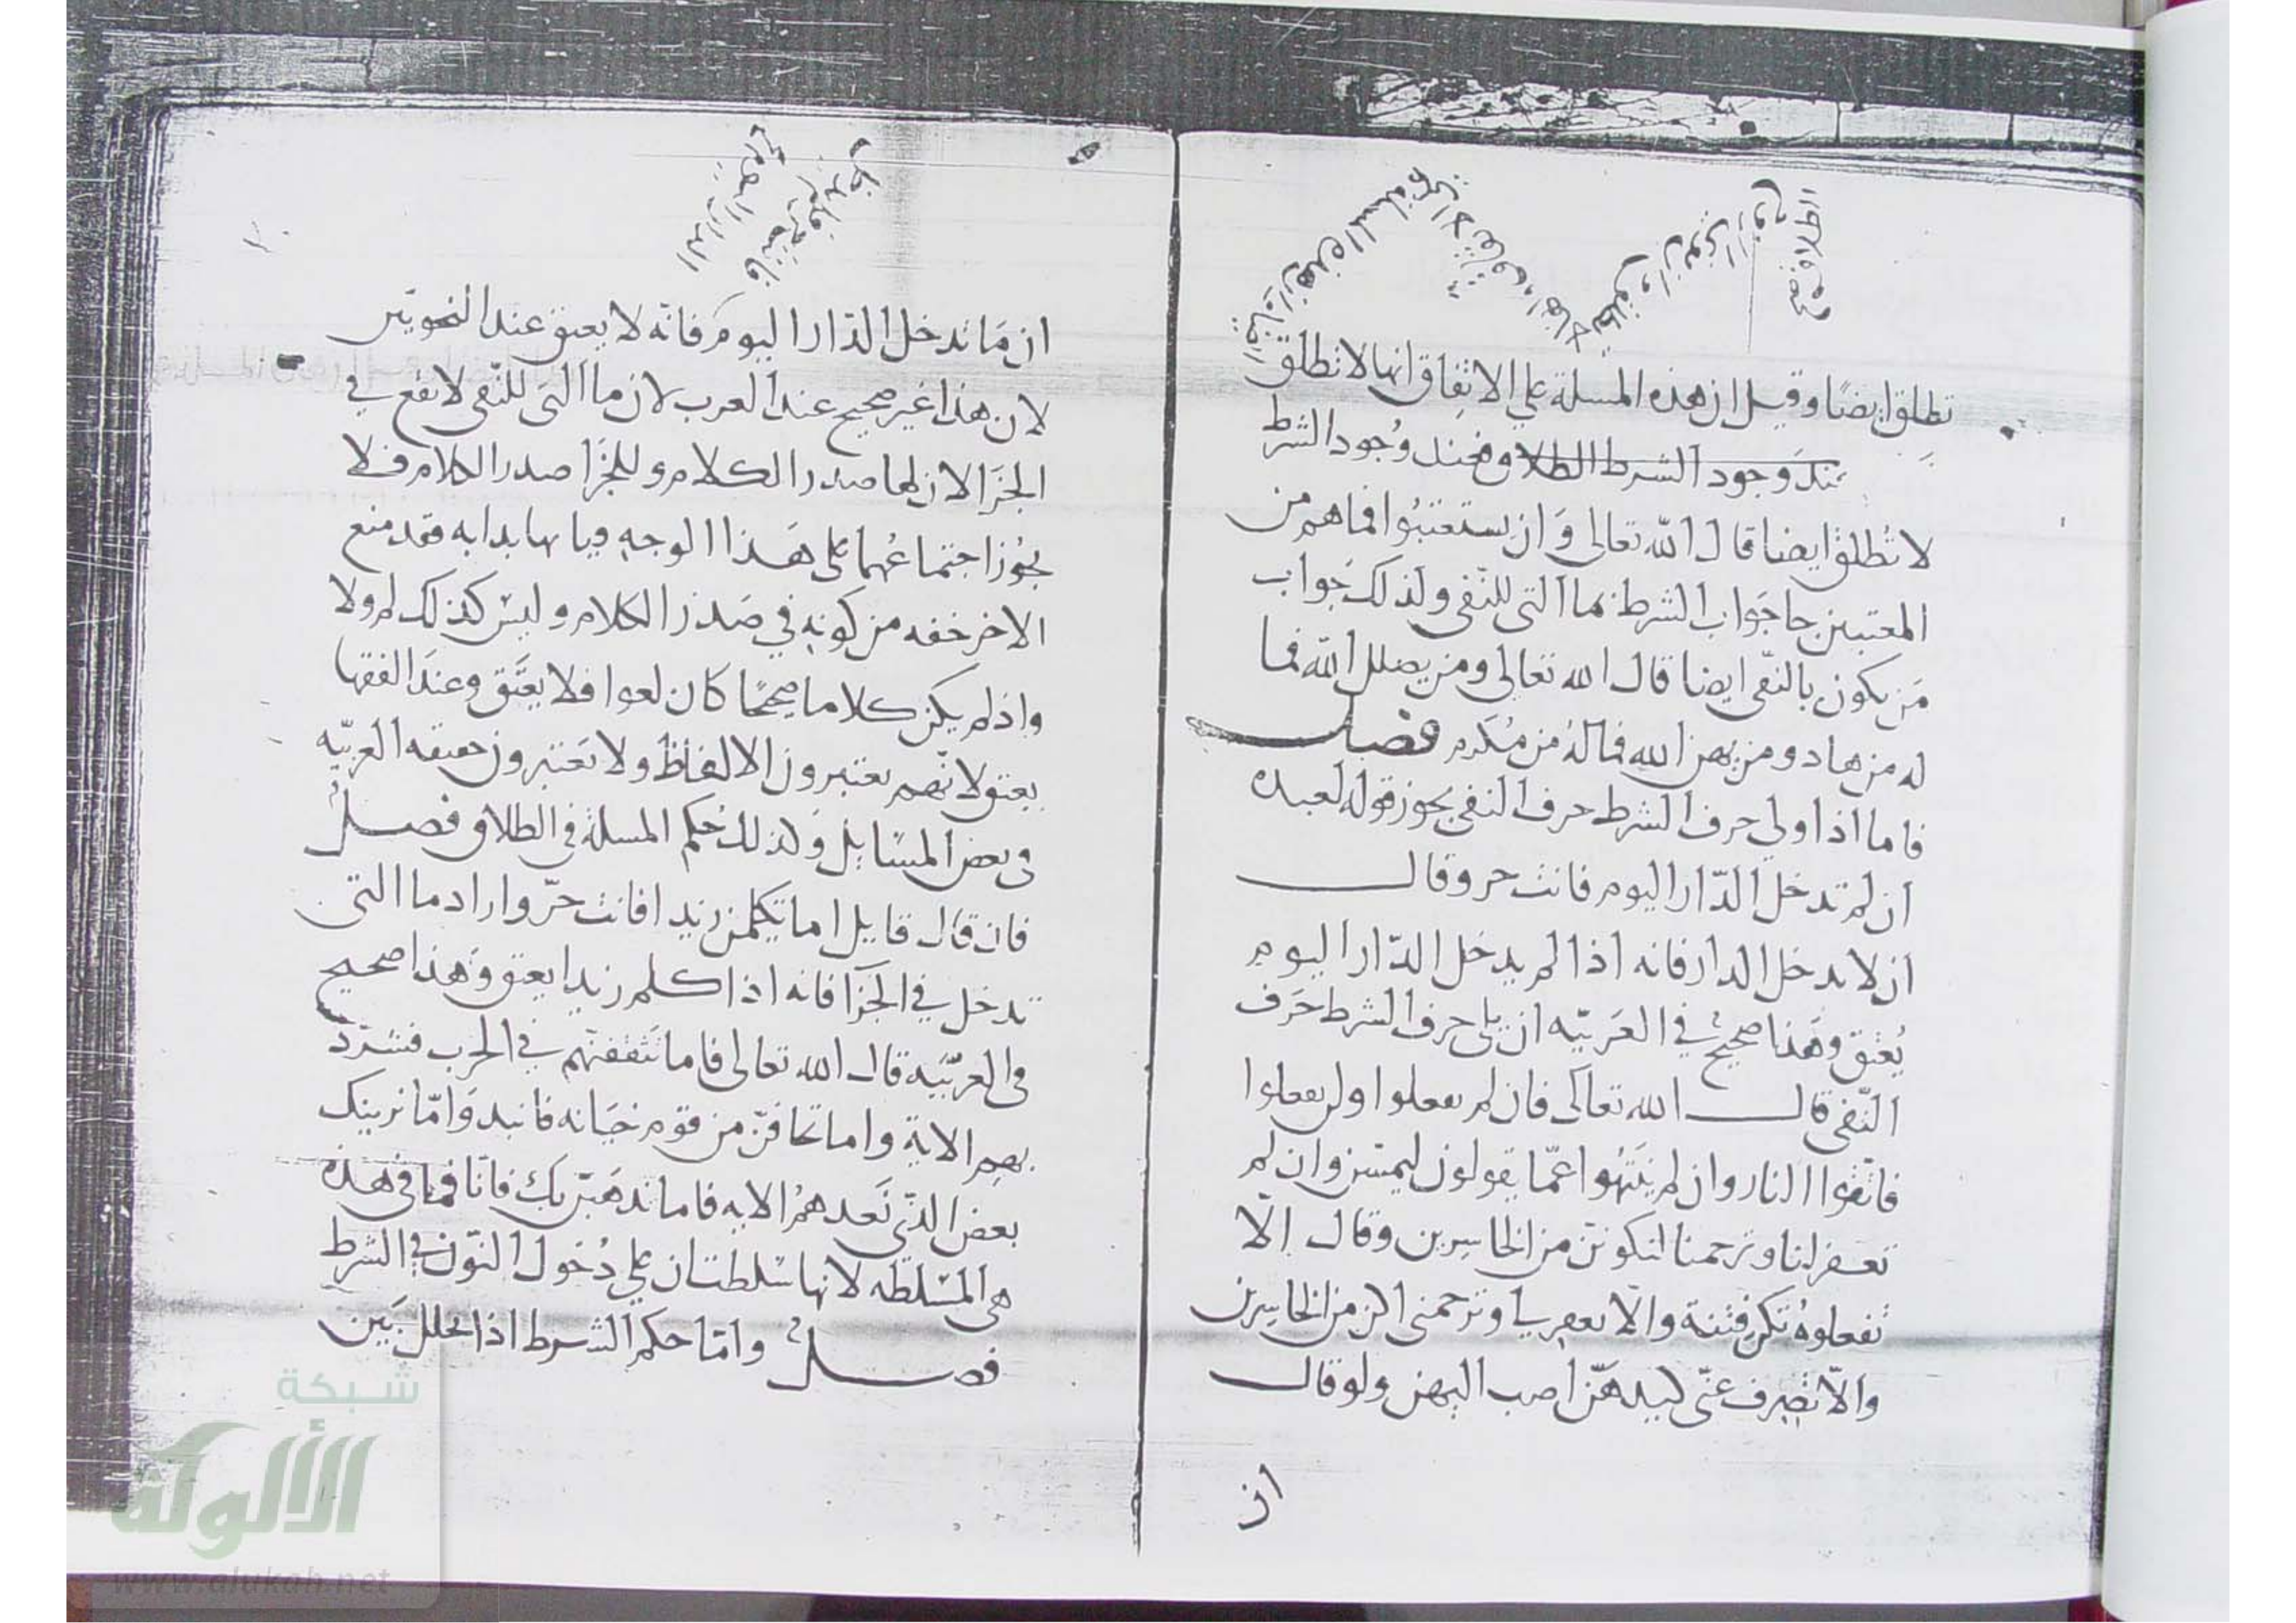 تطلق ايضًا وقيل ان هذه المسلة علي الاتفاق انها لا تطلق
عند وجود الشرط الطلاق فعند وُجود الشرط
لا تُطلق ايضا قال الله تعالى وَان يستعتبُوا فما هم من
المعتبين جا جَواب الشرط بما التى للنّفى ولذلك جَواب
مَن يكون بالنّفى ايضا قال الله تعالى ومن يضلل الله فما
له من هاد ومن يهن الله فما لهُ من مُكرم فصل
فاما اذا ولي حرف الشرط حرف النفى يجوز قوله لعبده
ان لم تدخل الدّار اليوم فانت حر وقال
ان لا تدخل الدار فانه اذا لم يدخل الدّار اليوم
يُعتق وهَذا صحيحٌ في العَربيّه ان يلى حرف الشرط حَرف
النّفى قال الله تعالى فان لم تفعلوا ولن تفعلوا
فاتّقوا النار وان لم يَنتَهُوا عمّا يقولون ليمسّن وان لم
تغفر لنا وترحمنا لنكونن من الخاسِرين وقال إلّا
تفعلوهُ تكن فتنة والّا تغفر لي وترحمنى اكن من الخاسِرين
والّا تصرِف عنّى كيدهنّ اصب اليهن ولو قال
ان
ان مَا تدخل الدّار اليومَ فانّه لا يعتق عند النحويّين
لان هذا غير صحيح عند العرب لان ما التى للنّفى لا تقع في
الجزَا لان لها صدر الكلام وللجَزا صدر الكلام فلا
يجُوز اجتماعُهما على هَذا الوجهِ وبايها بدا به فقد منع
الاخر حقه من كونِه في صَدر الكلام وليسَ كذلك لم ولا
واذا لم يكن كلاما صحيحًا كان لغوا فلا يعتَق وعندَ الفقها
يعتق لانّهم يعتبرون الالفاظ ولا يَعتبرون حقيقه العربيّه
فى بعض المسَايل وَكذلك حُكم المسلة في الطلاق فصلٌ
فان قال قايل اما تكلمن زيدا فانت حرّ واراد ما التى
تدخل في الجزَآ فانه اذا كلم زيدا يعتق وَهذا صحيح
فى العربّيَه قال الله تعالى فاما تَثقفنّهم في الحرب فشرّد
بهم الاية واما تخافنّ من قوم خيَانه فانبذ وَامّا نرينك
بعض الذّى نَعدهمُ الايه فاما نذهَبنّ بك فانّا فما فى هذه
هى المسَلطَه لانها سَلطت ان على دُخول النّون في الشرط
فصلٌ وامّا حكم الشرط اذا تخلل بَين
شبكة
الألوكة
www.alukah.net